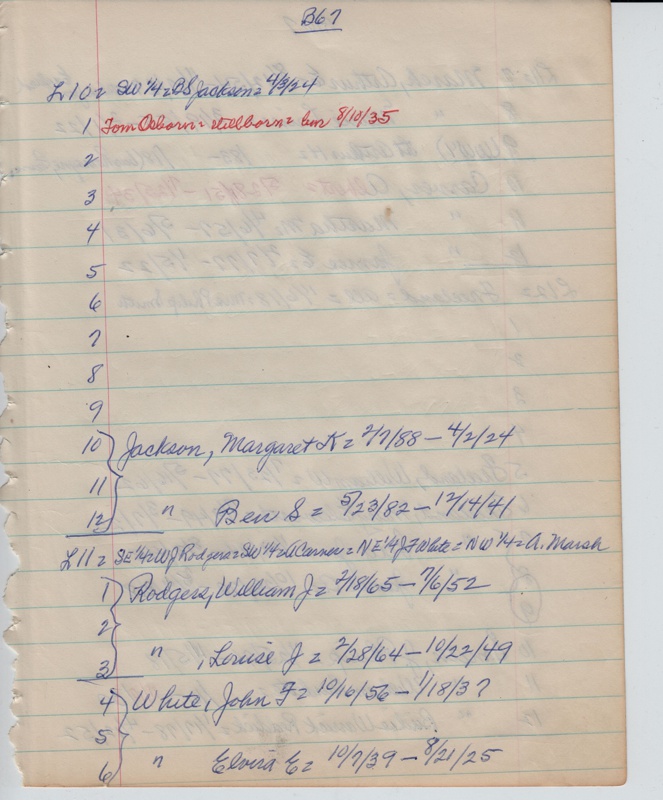 B67
L 10 = SW 1/4 = BS Jackson = 4/3/24
1 Tom Osborn = stillborn = bur 8/10/35
2
3
4
5
6
7
8
9
10 Jackson, Margaret K = 2/7/88 – 4/2/24
11
12 " Ben S = 5/23/82 – 12/14/41
L 11 = SE 1/4 = WJ Rodgers = SW 1/4 = A Carnes = NE 1/4 JF White = NW 1/4 = A. Marsh
1 Rodgers, William J = 2/18/65 – 7/6/52
2
3 " , Louise J = 2/28/64 – 10/22/49
4 White, John F = 10/16/56 – 1/18/37
5
6 " Elvira E = 10/7/39 – 8/21/25